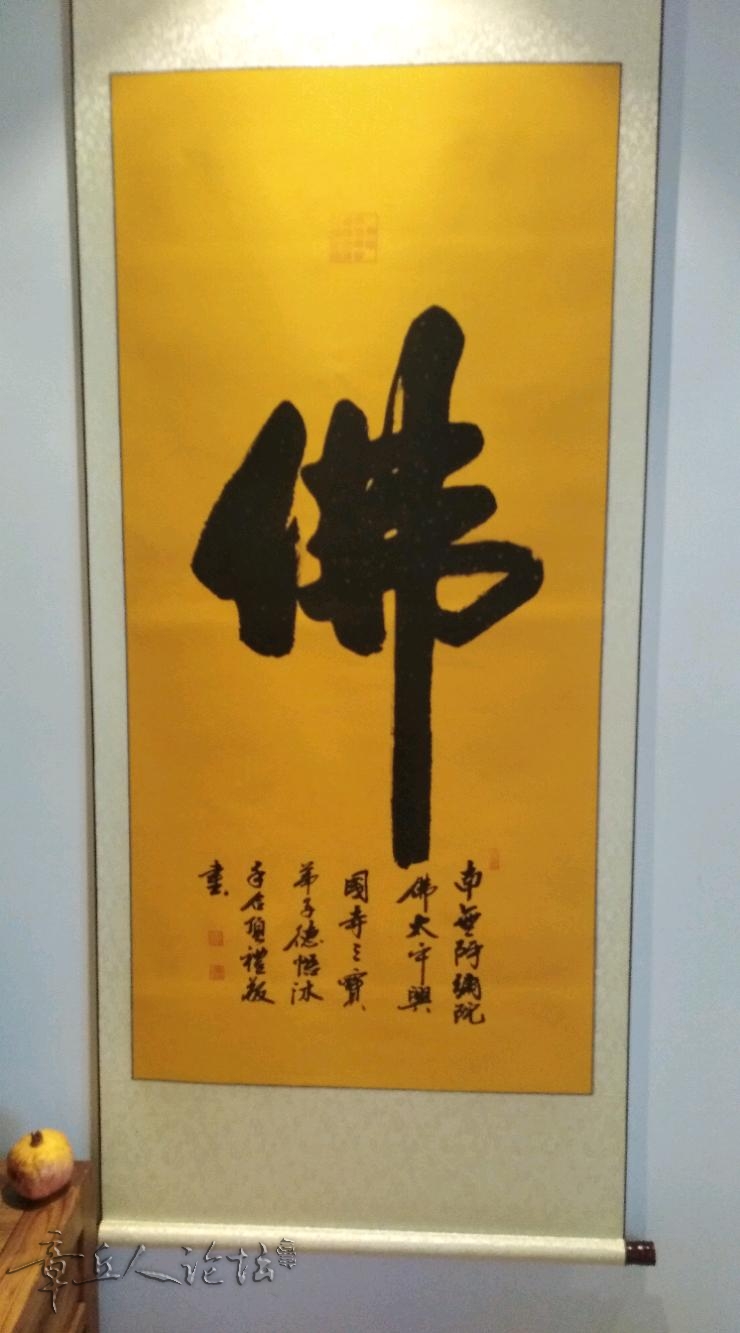 佛
南無阿彌陀
佛太平興
國寺三寶
弟子德悟沐
手合頂禮敬
書
章丘人论坛